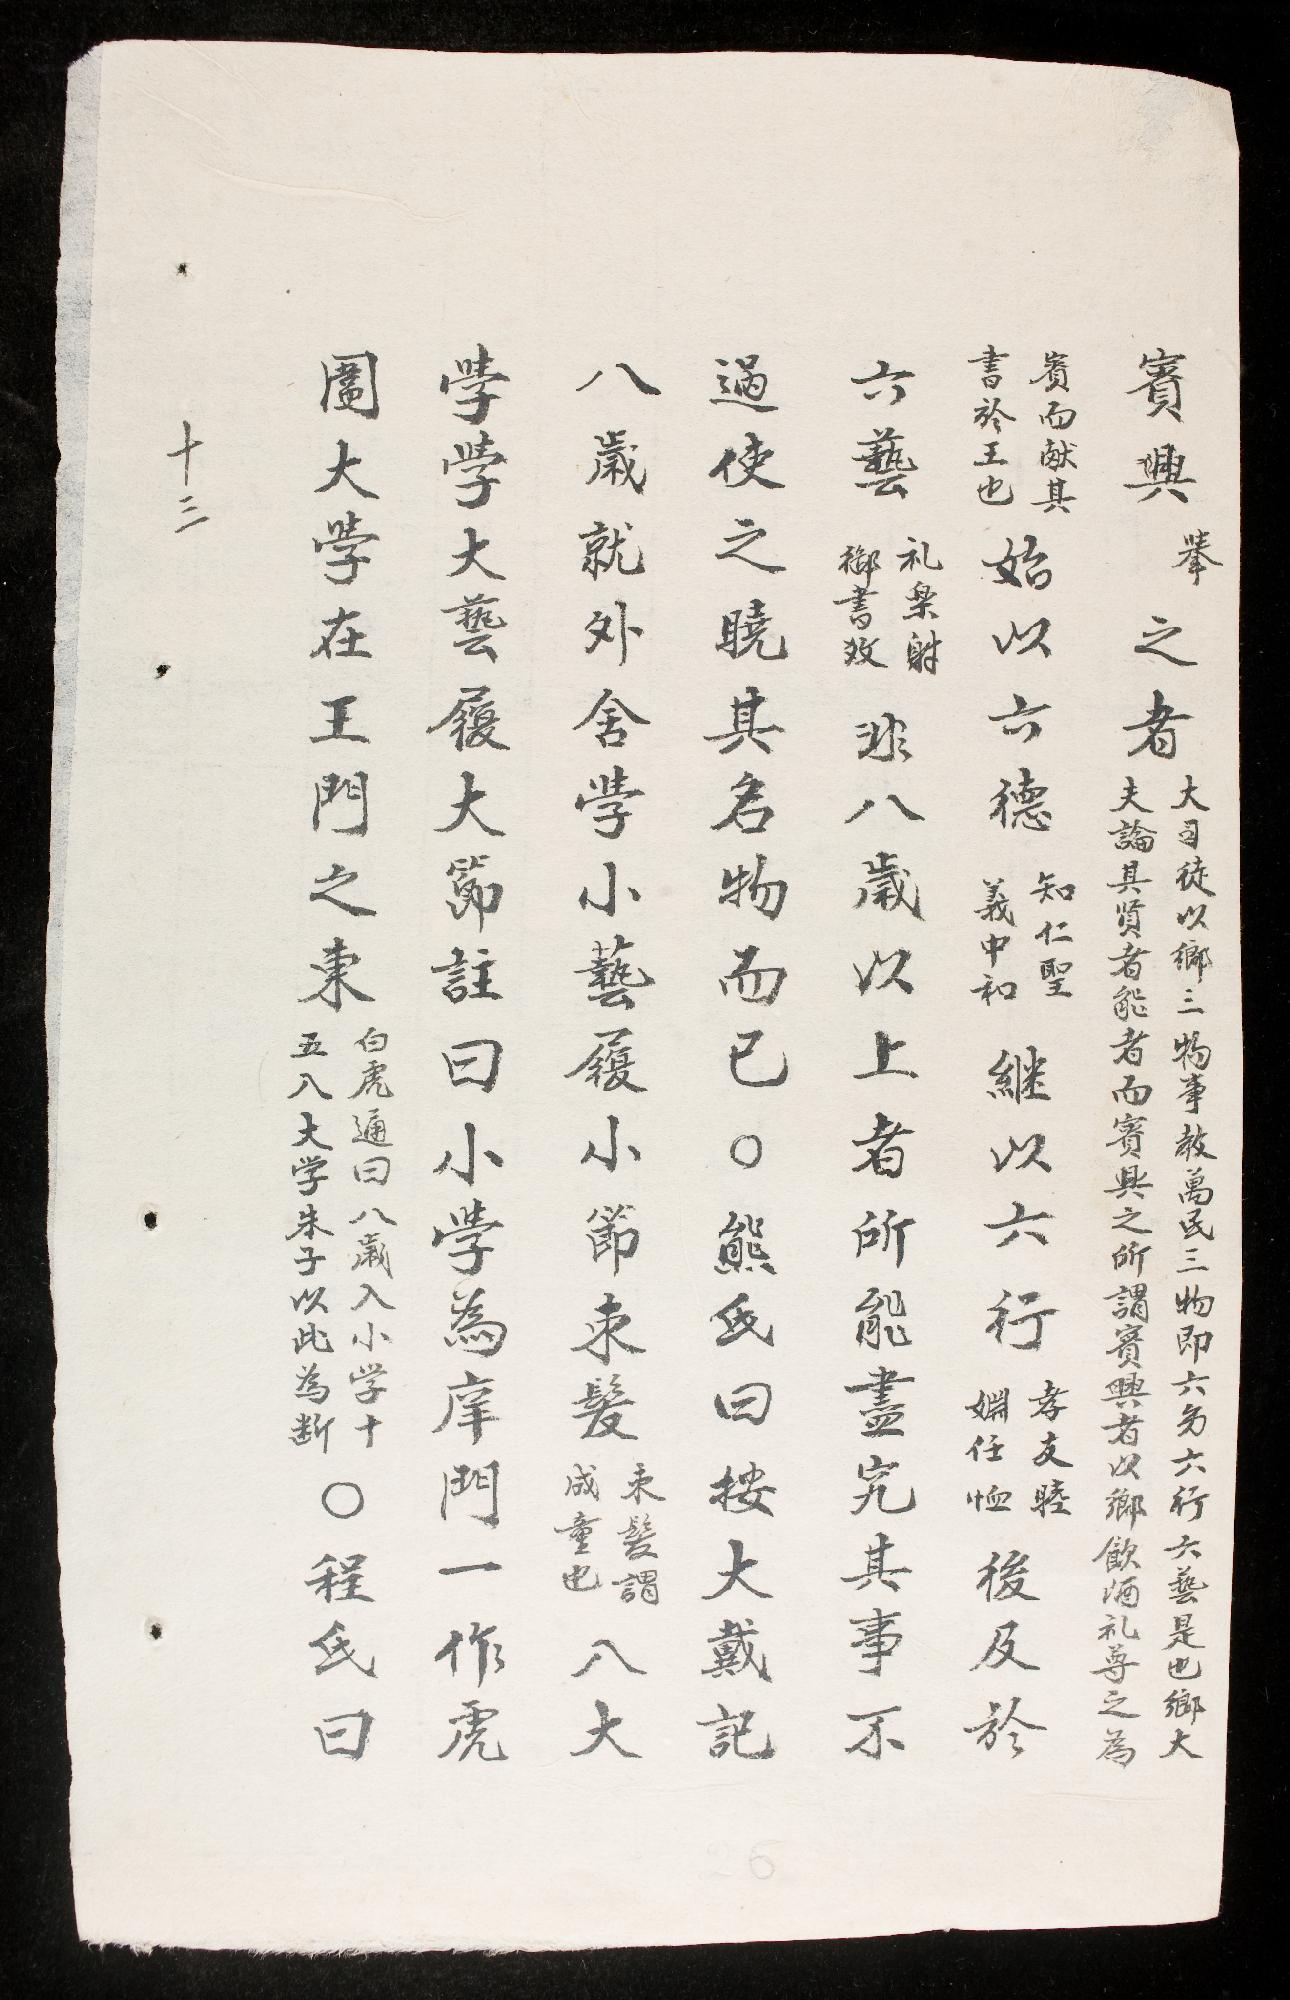 賓興舉之者大司徒以鄉三物事教萬民三物即六徳六行六藝是也鄉大
夫論其贤者能者而賓興之所謂賓興者以鄉飲酒礼尊之為
賓而献其
書於王也始以六徳知仁聖
義中和継以六行孝友睦
婣任恤後及於
六藝礼楽射
御書数非八歳以上者所能盡究其事不
過使之曉其名物而已〇熊氏曰按大戴記
八歳就外舍学小藝履小節束髪束髪謂
成童也八大
學學大藝履大節註曰小学為庠門一作虎
闈大学在王門之東白虎通曰八歳入小学十
五八大学朱子以此為断〇程氏曰
十三
26